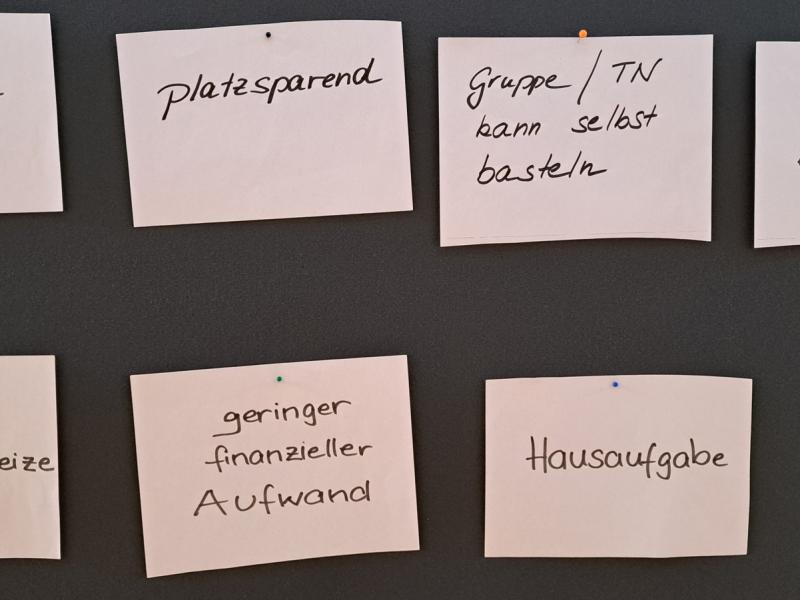 platzsparend
Gruppe / TN
kann selbst
basteln
eize
geringer
finanzieller
Aufwand
Hausaufgabe